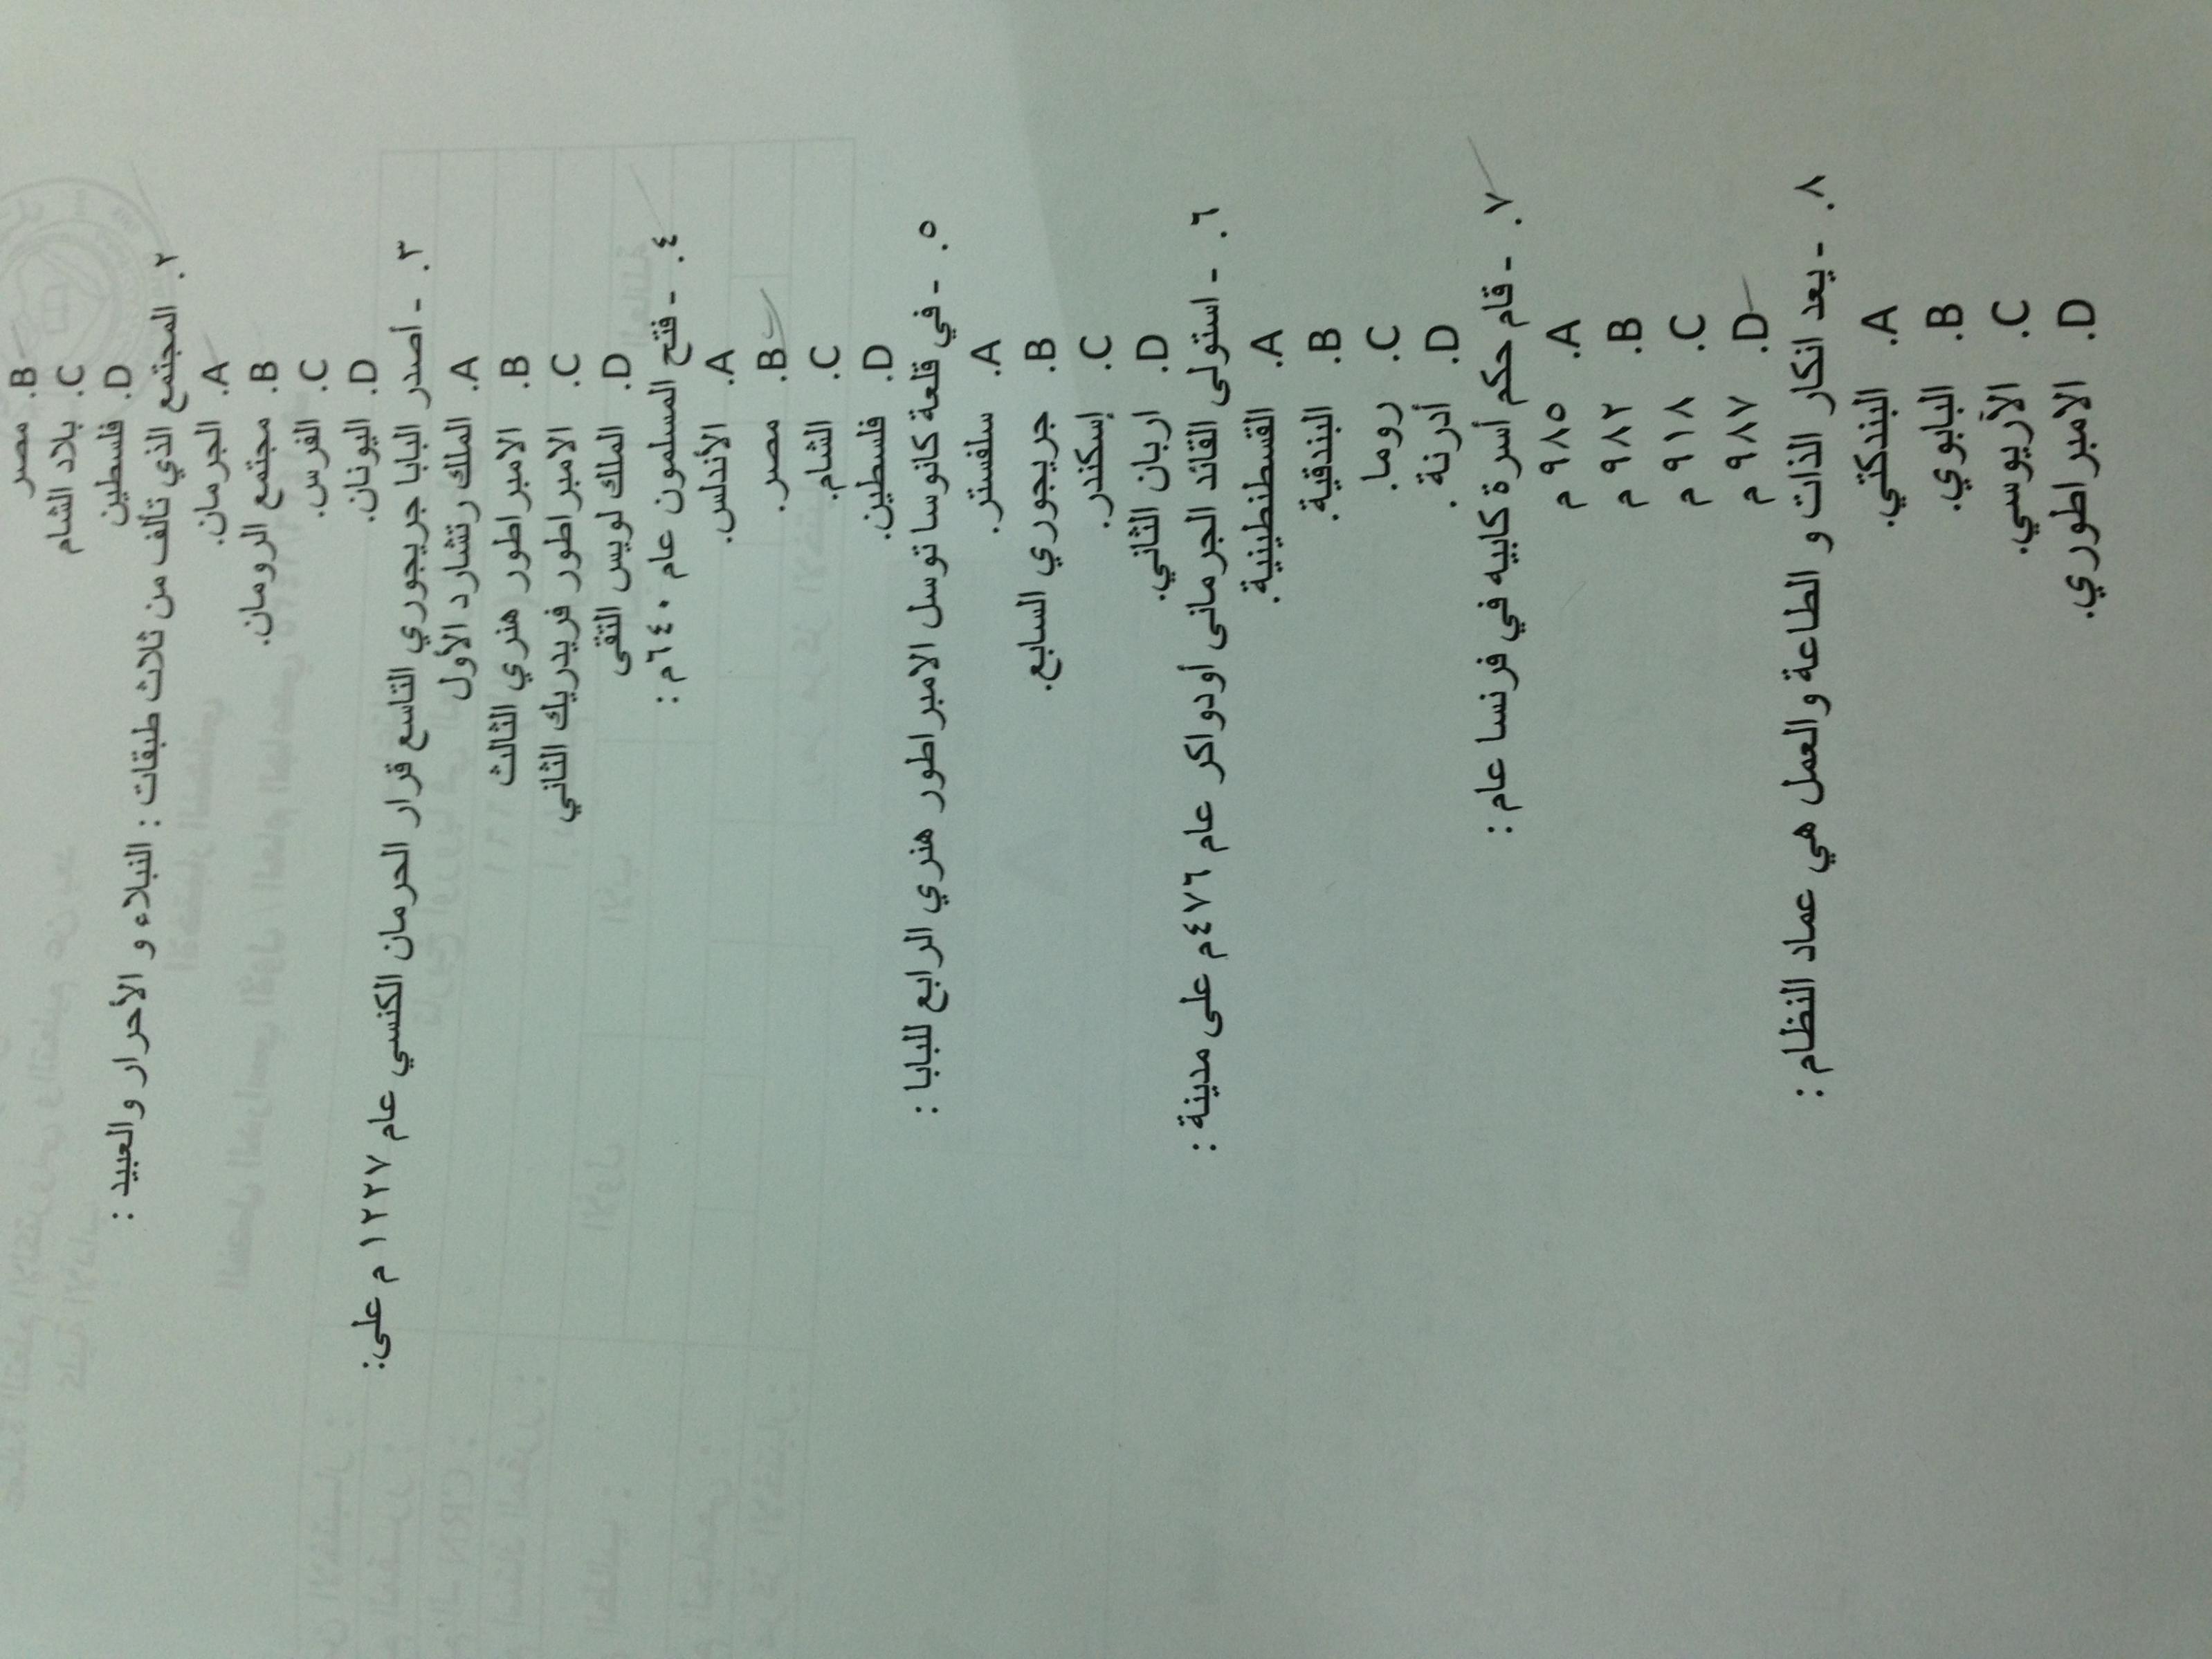 B. مصر
C. بلاد الشام
D. فلسطين
٢. المجتمع الذي تألف من ثلاث طبقات : النبلاء و الأحرار والعبيد :
A. الجرمان.
B. مجتمع الرومان.
C. الفرس.
D. اليونان.
٣. - أصدر البابا جريجوري التاسع قرار الحرمان الكنسي عام ١٢٢٧ م على:
A. الملك رتشارد الأول
B. الامبراطور هنري الثالث
C. الامبراطور فريدريك الثاني
D. الملك لويس التقى
٤. - فتح المسلمون عام ٦٤٠م :
A. الأندلس.
B. مصر.
C. الشام.
D. فلسطين.
٥. - في قلعة كانوسا توسل الامبراطور هنري الرابع للبابا :
A. سلفستر.
B. جريجوري السابع.
C. إسكندر.
D. اربان الثاني.
٦. - استولى القائد الجرمانى أودواكر عام ٤٧٦م على مدينة :
A. القسطنطينية.
B. البندقية.
C. روما.
D. أدرنة .
٧. - قام حكم أسرة كابيه في فرنسا عام :
A. ٩٨٥ م
B. ٩٨٢ م
C. ٩١٨ م
D. ٩٨٧ م
٨. - يعد انكار الذات و الطاعة والعمل هي عماد النظام :
A. البندكتي.
B. البابوي.
C. الآريوسي.
D. الامبراطوري.